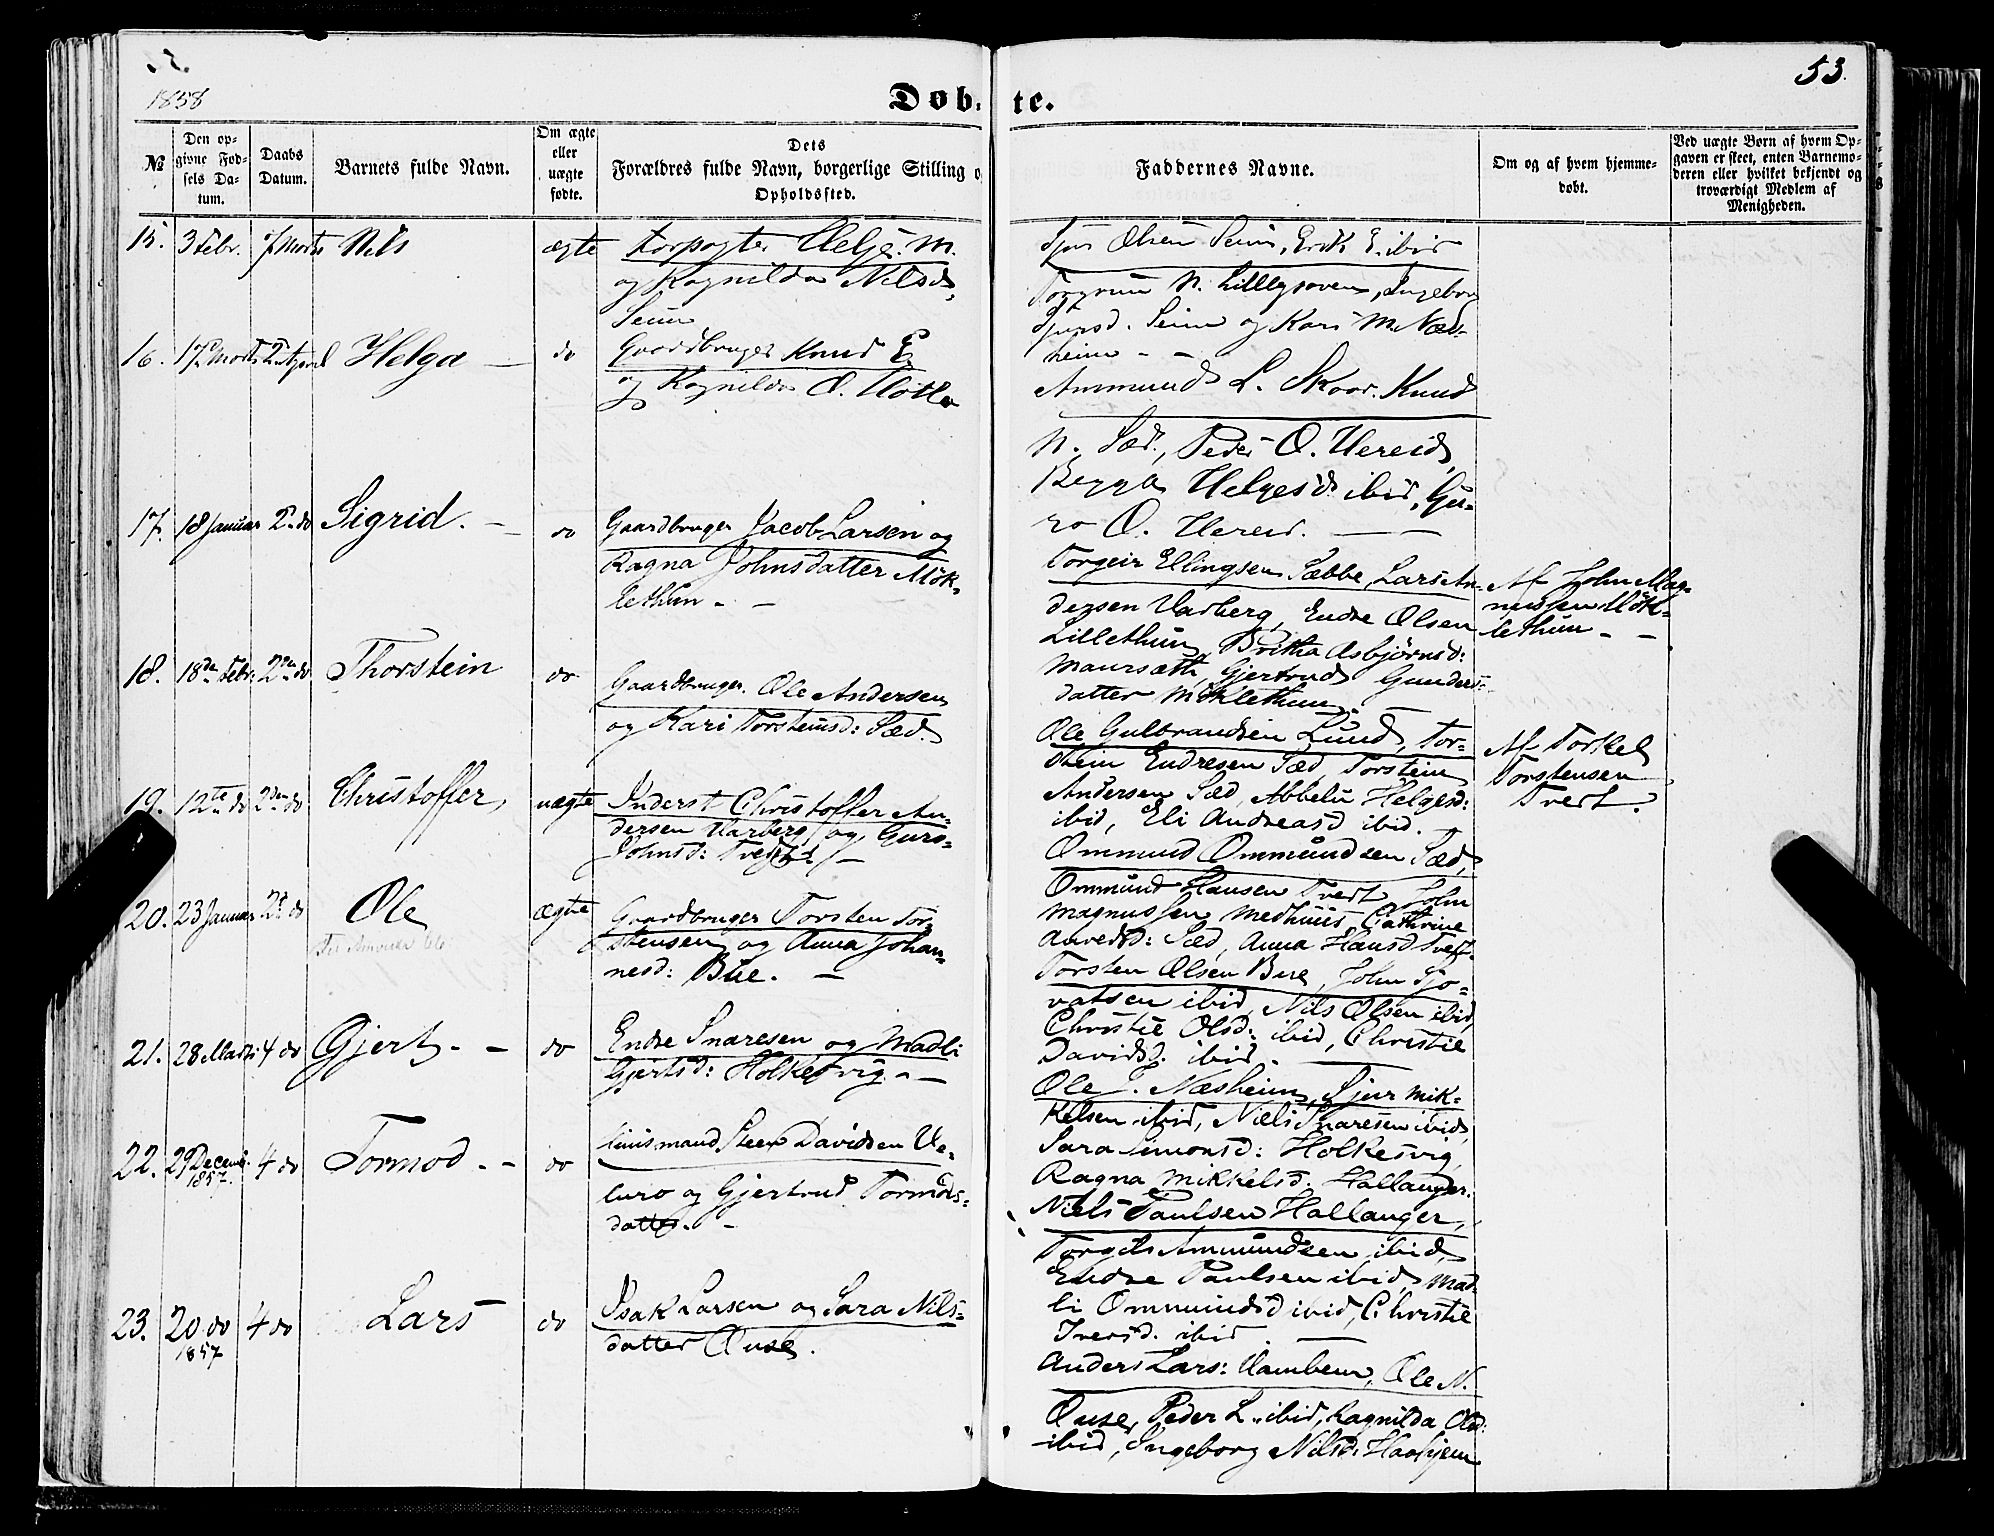 1858
53.
Døb- te.
№
Den op-
givne Fød-
sels Da-
tum.
Daabs
Datum.
Barnets fulde Navn.
Om ægte
eller
uægte
fødte.
Dets
Forældres fulde Navn, borgerlige Stilling o
Opholdssted.
Faddernes Navne.
Om og af hvem hjemme-
døbt.
Ved uægte Børn af hvem Op-
gaven er skeet, enten Barnemo-
deren eller hvilket bekjendt og
troværdigt Medlem af
Menigheden.
15. 3 Febr. 7 Marts Nils ægte Helje M.
og Ragnilda Nilsd.
Seim
Olsen Seim, Erik E. ibid
Torgrim N. Lillegraven, Ingeborg
Sjursd. Seim og Kari M. Næs-
heim - -
16. 17 Marts 2 April Helga - do Gaardbruger Knud E
og Ragnilda O.
Ammund L. Skaar. Knud
N. Sæd, Peder O. Hereid,
Helgesd. ibid, Gu-
ro O. Hereid. -
17. 18 Januar 2 do Sigrid. - do Gaardbruger Jacob Larsen og
Ragna Johnsdatter Møk-
lethun - -
Torgeir Ellingsen Sæbbe, Lars An-
dersen Varberg, Endre Olsen
Lillethun, Britha Asbjørnsd:
Maursæth, Gjertrud Gunders-
datter Møklethun.
Af John Mag-
nussen Møk-
lethun - -
18. 18de Febr: 2den do Thorstein do Gaardbruger. Ole Andersen
og Kari Torsteinsd: Sæd.
Ole Gulbrandsen Lund, Tor-
stein Endresen Sæd, Torstein
Andersen Sæd, Abbelu Helgesd:
ibid, Eli Andreasd ibid.
Af Torkel
Torstensen
Tveit.
19. 12te do 2den do Christoffer, uægte Inderst Christoffer An-
dersen Varberg og Guro
Johnsd: Tveit -
Ommund Ommundsen Sæd,
Ommund Hansen Tveit, John
Magnussen Medhuus, Cathrine
Sæd, Anna Hansd Tveit
20. 23 Januar 2 do Ole ægte Gaardbruger Torsten Tor-
stensen og Anna Johan-
nesd: Bue. -
Torsten Olsen Bue, John Sjo-
vatsen ibid, Nils Olsen ibid,
Christie Olsd: ibid, Christie
Davidsd. ibid. -
21. 28 Marts 4 do Gjert - - do Endre Snaresen og Madli
Gjertsd: Holkesvig - -
Ole Næsheim, Sjur Mik-
kelsen ibid, Niels Snaresen ibid,
Sara Simonsd: Holkesvig,
Ragna Mikkelsd. Hallanger.
22. 29 Decemb. 1857. 4 do Tormod - - do Huusmand Steen Davidsen Ve-
luro og Gjertrud Tormods-
datter. -
Niels Paulsen Hallanger,
Torgils Ammundsen ibid,
Endre Paulsen ibid, Mad-
li Ommundsd ibid, Christie
Iversd. ibid. -
23. 20 do 1857 4 do Lars do Isak Larsen og Sara Nils-
datter Øuse.
Anders Lars: Vambem, Ole N.
Øuse, Peder L. ibid, Ragnilda Olsd:
ibid, Ingeborg Nilsd. Haahjem